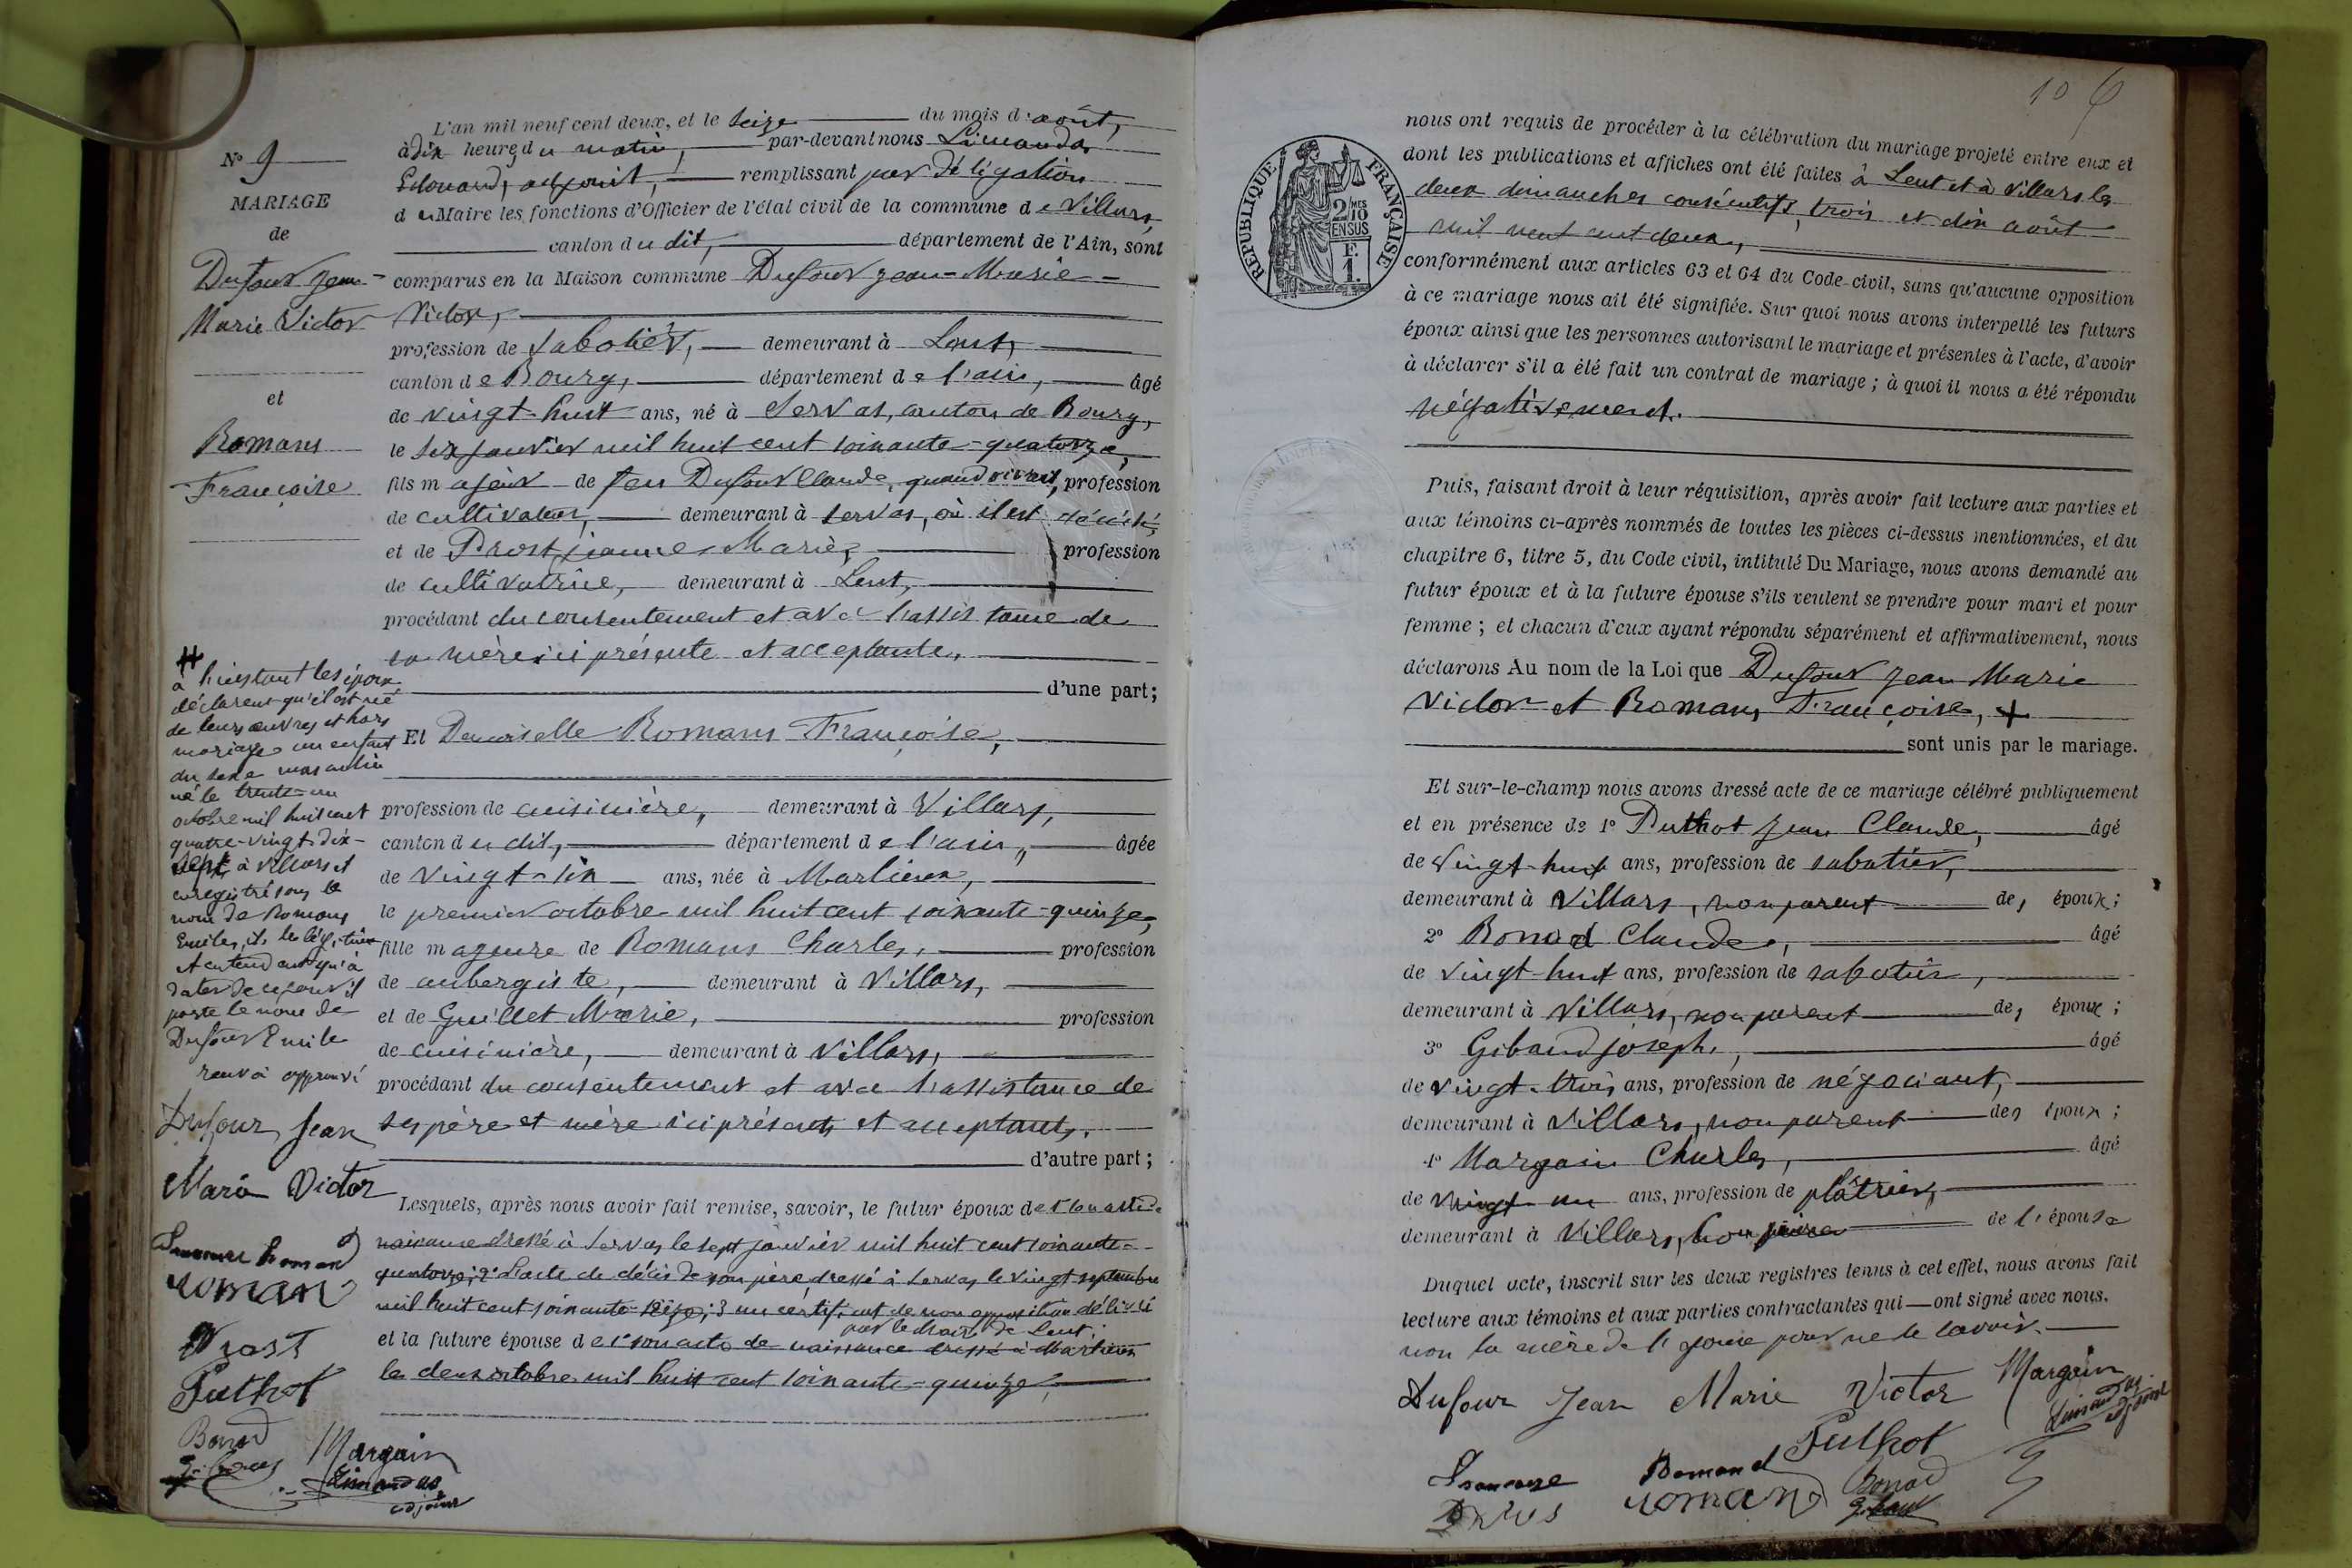 N° 9
MARIAGE
de
Dufour Jean-
Marie Victor
et
Romans
Françoise
L'an mil neuf cent deux, et le seize du mois d'août,
à dix heures du matin, par-devant nous Limandas
Edouard, adjoint, remplissant par délégation
du Maire les fonctions d'Officier de l'état civil de la commune de Villars,
canton du dit, département de l'Ain, sont
comparus en la Maison commune Dufour Jean-Marie-
Victor,
profession de sabotier, demeurant à Lent,
canton de Bourg, département de l'ain, âgé
de vingt-huit ans, né à Servas, canton de Bourg,
le six janvier mil huit cent soixante-quatorze,
fils majeur de feu Dufour Claude, quand vivait, profession
de cultivateur, demeurant à Servas, où il est décédé,
et de Prost Jeanne Marie, profession
de cultivatrice, demeurant à Lent,
procédant du consentement et avec l'assistance de
sa mère ici présente et acceptante,
d'une part;
Et Demoiselle Romans Françoise,
profession de cuisinière, demeurant à Villars,
canton du dit, département de l'ain, âgée
de vingt-six ans, née à Marlieux,
le premier octobre mil huit cent soixante-quinze,
fille majeure de Romans Charles, profession
de aubergiste, demeurant à Villars,
et de Guillet Marie, profession
de cuisinière, demeurant à Villars,
procédant du consentement et avec l'assistance de
ses père et mère ici présents et acceptants,
d'autre part;
Lesquels, après nous avoir fait remise, savoir, le futur époux de 1° son acte de
naissance dressé à Servas le sept janvier mil huit cent soixante-
quatorze; 2° l'acte de décès de son père, dressé à Servas le vingt septembre
mil huit cent soixante-seize; 3 un certificat de non opposition délivré
par le maire de Lent;
et la future épouse de 1° son acte de naissance dressé à Marlieux
le deux octobre mil huit cent soixante-quinze,
à l'instant les époux
déclarent qu'il est né
de leurs œuvres et hors
mariage un enfant
du sexe masculin
né le trente-un
octobre mil huit cent
quatre-vingt-dix-
sept, à Villars et
enregistré sous le
nom de Romans
Emile, ils le légitiment
et entendent qu'à
dater de ce jour il
porte le nom de
Dufour Emile
renvoi approuvé
Dufour Jean
Marie Victor
Romand
roman
Prost
Puthot
Bonod
Margain
Limandas
adjoint
106
REPUBLIQUE FRANÇAISE
2/10MES
EN SUS
F.
1.
nous ont requis de procéder à la célébration du mariage projeté entre eux et
dont les publications et affiches ont été faites à Lent et à Villars les
deux dimanches consécutifs, trois et dix août
mil neuf cent deux,
conformément aux articles 63 et 64 du Code civil, sans qu'aucune opposition
à ce mariage nous ait été signifiée. Sur quoi nous avons interpellé les futurs
époux ainsi que les personnes autorisant le mariage et présentes à l'acte, d'avoir
à déclarer s'il a été fait un contrat de mariage; à quoi il nous a été répondu
négativement.
Puis, faisant droit à leur réquisition, après avoir fait lecture aux parties et
aux témoins ci-après nommés de toutes les pièces ci-dessus mentionnées, et du
chapitre 6, titre 5, du Code civil, intitulé Du Mariage, nous avons demandé au
futur époux et à la future épouse s'ils veulent se prendre pour mari et pour
femme; et chacun d'eux ayant répondu séparément et affirmativement, nous
déclarons Au nom de la Loi que Dufour Jean Marie
Victor et Romans Françoise,
sont unis par le mariage.
Et sur-le-champ nous avons dressé acte de ce mariage célébré publiquement
et en présence de 1° Puthot Jean Claude, âgé
de vingt-huit ans, profession de sabotier,
demeurant à Villars, non parent des époux;
2° Bonod Claude, âgé
de vingt-huit ans, profession de sabotier,
demeurant à Villars, non parent des époux;
3° Gibaud Joseph, âgé
de vingt-trois ans, profession de négociant,
demeurant à Villars, non parent des époux;
4° Margain Charles, âgé
de vingt-un ans, profession de plâtrier,
demeurant à Villars, de l'épouse
Duquel acte, inscrit sur les deux registres tenus à cet effet, nous avons fait
lecture aux témoins et aux parties contractantes qui ont signé avec nous.
non la mère de l'épouse pour ne le savoir.
Dufour Jean Marie Victor Margain
Limandas
adjoint
Puthot
Romand
roman
Bonod
Gibaud